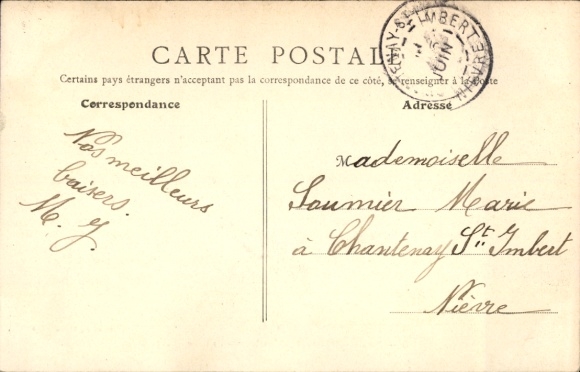 CARTE POSTALE
Certains pays étrangers n'acceptant pas la correspondance de ce côté, se renseigner à la Poste
Correspondance
Adresse
Nos meilleurs
baisers.
M. J.
Mademoiselle
Soumier Marie
à Chantenay St. Imbert
Nièvre
IMBERT
JUIN